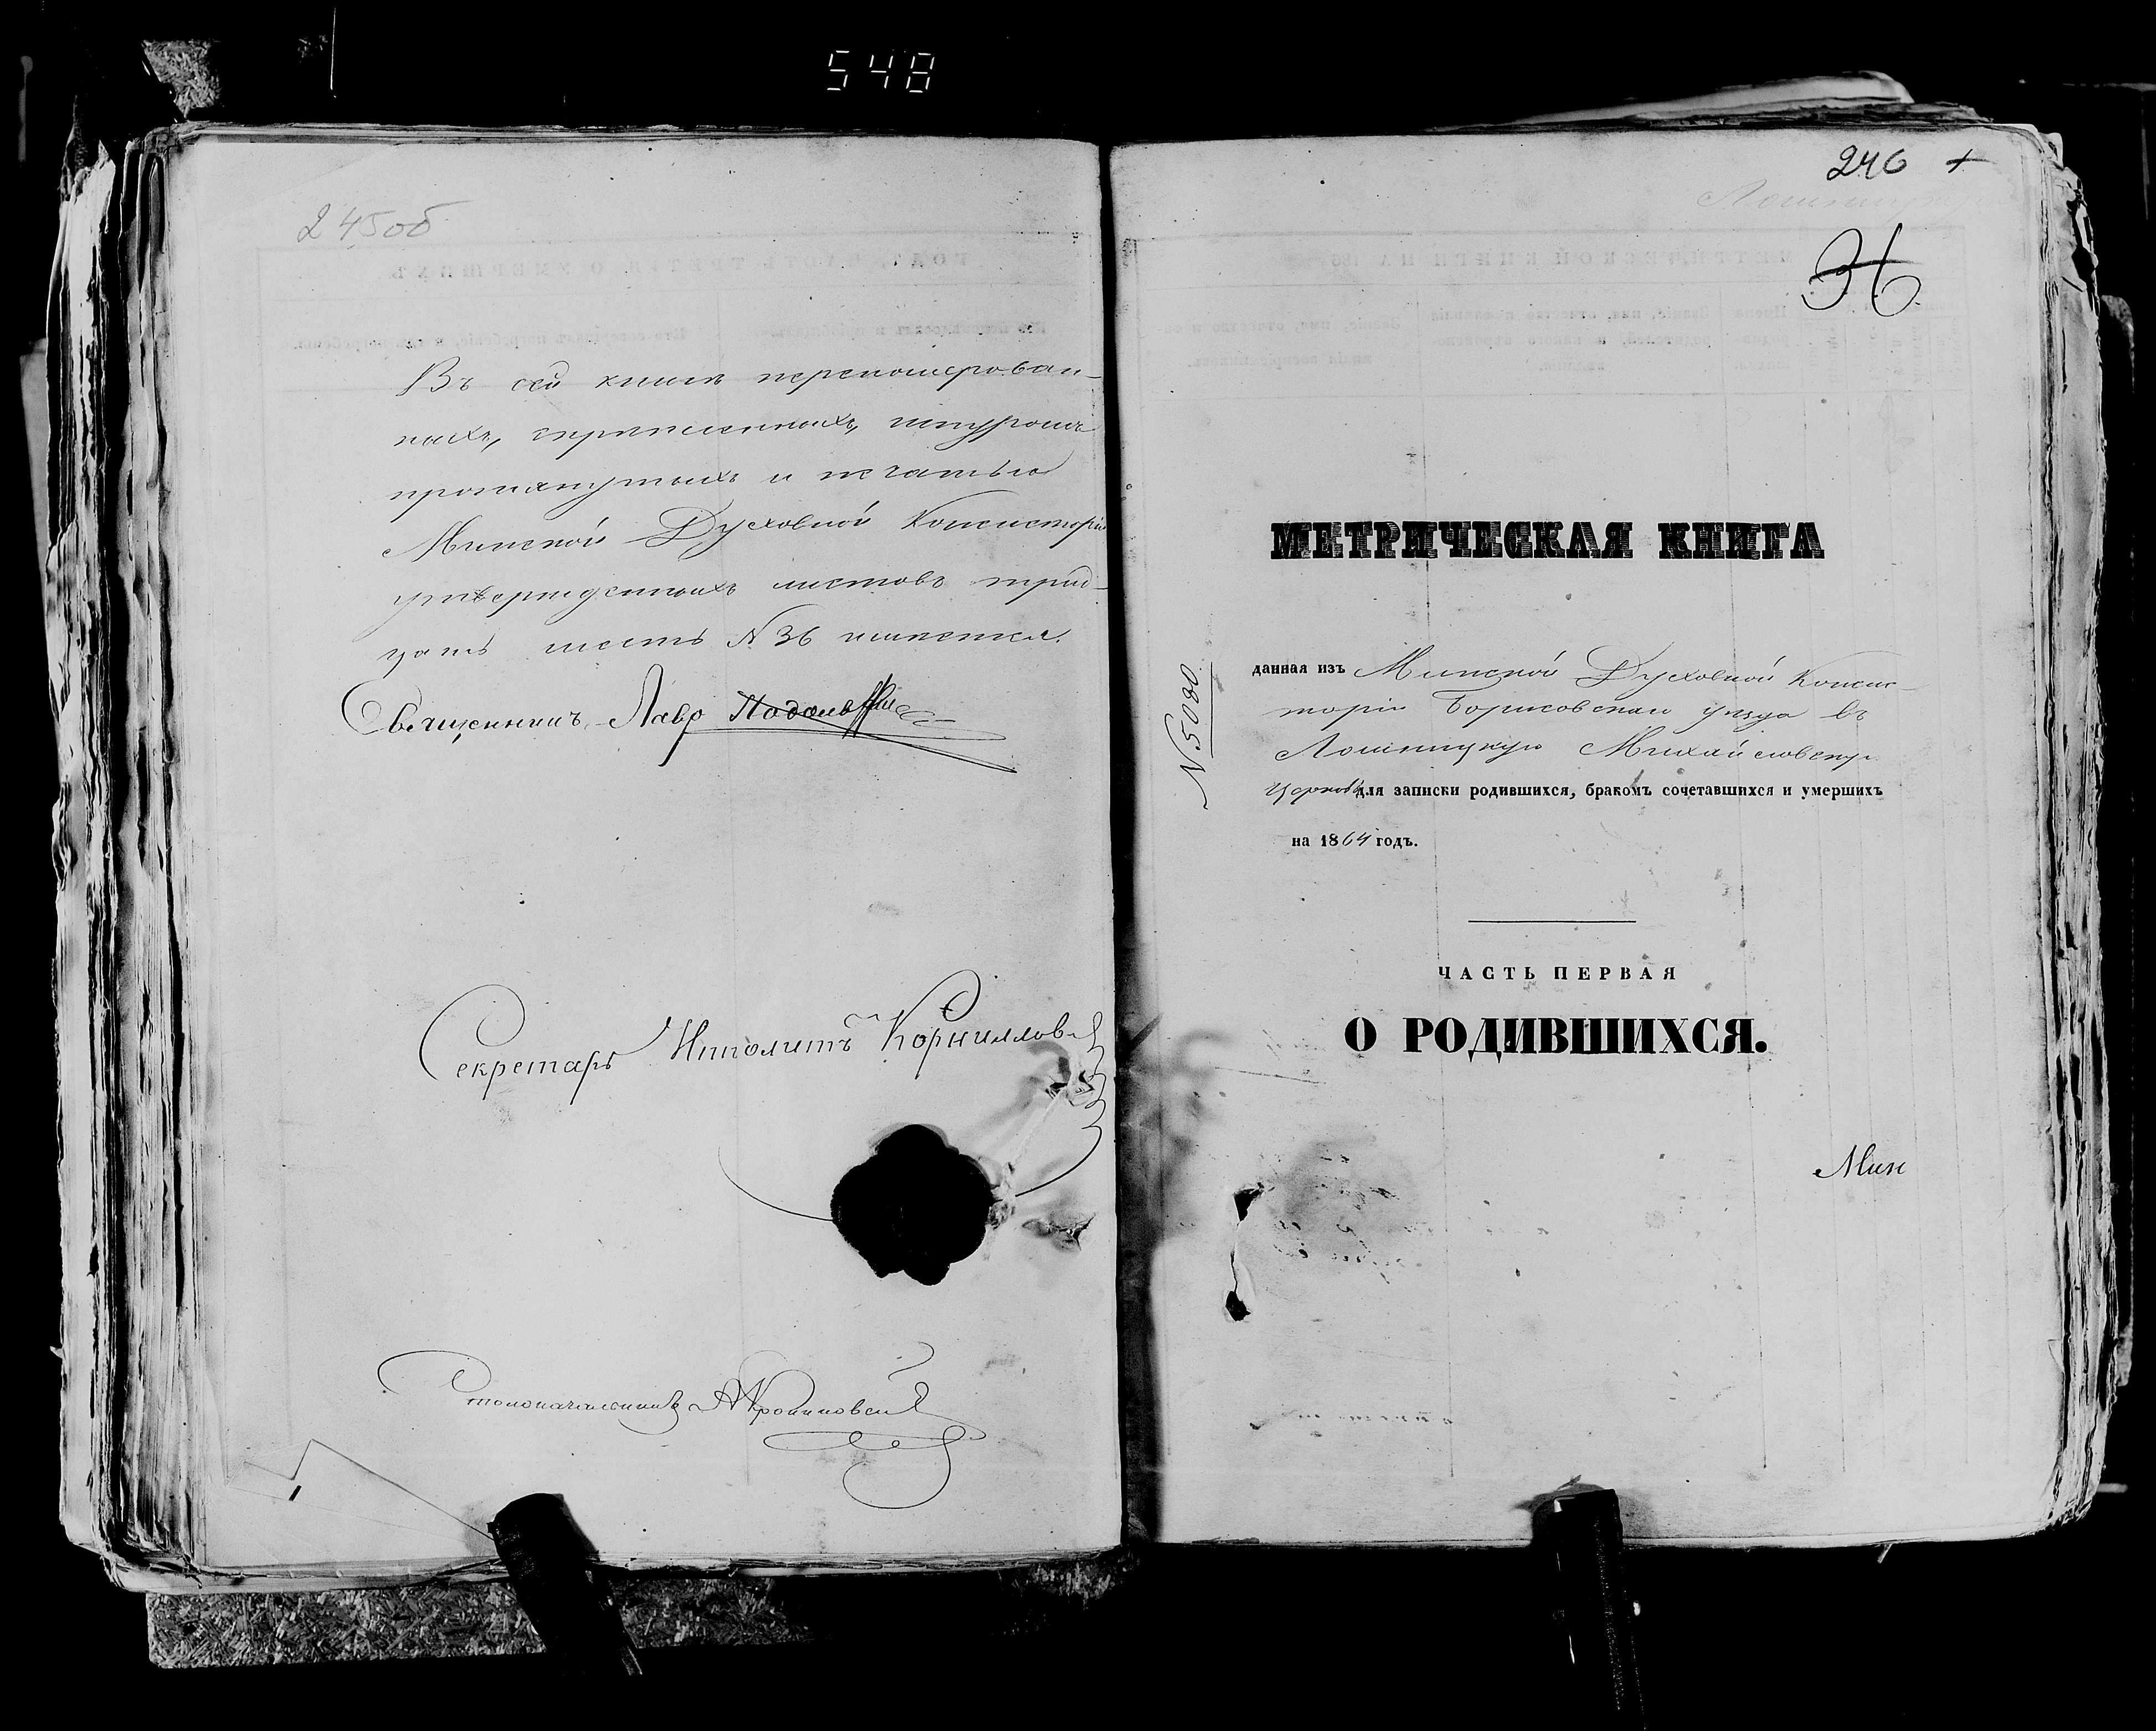 548
245об
Въ сей книгѣ перенумерован-
ныхъ, скрѣпленныхъ, шнуромъ
протянутыхъ и печатью
Минской Духовной Консисторіи
утвержденныхъ листовъ трид-
цать шесть N 36 имѣется.
Священникъ Лавр
Секретарь Ипполитъ Корниллов
Столоначальникъ
246 +
36
МЕТРИЧЕСКАЯ КНИГА
N 5000
данная изъ Минской Духовной Консис-
торіи Борисовскаго уѣзда въ
Лошницкую Михайловскую
церковь для записки родившихся, бракомъ сочетавшихся и умершихъ
на 1864 годъ.
ЧАСТЬ ПЕРВАЯ
О РОДИВШИХСЯ.
Мин